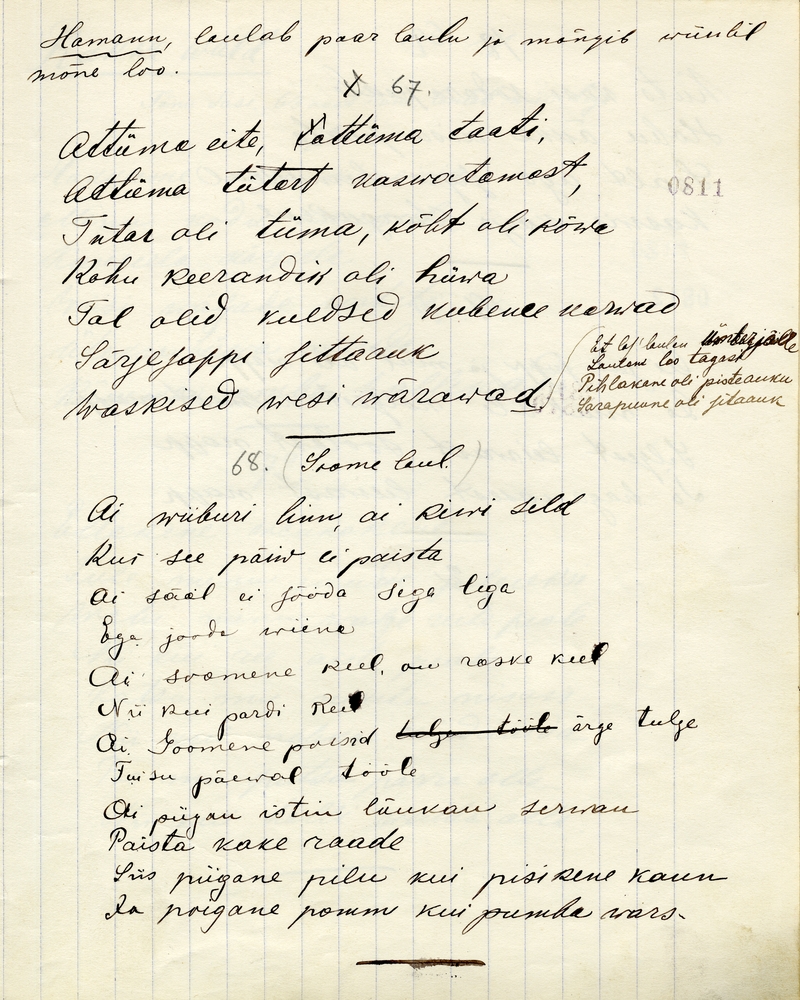 Hamann, laulab paar laulu ja mängib wiiulil
mõne loo.
X 67.
Attüma eite, tattüma taati,
Attüma tütart kaswatamast,
Tütar oli tüma, kõht oli kõwa
Kõhu keerandik oli hüwa
Tal olid kuldsed kubeme karwad
Särjesappi sittaauk
Waskised wesi wärawad.
0811
Lautani loo tagast
Pihlakane oli pisteauku
Sarapuune oli sitaauk
68. (Soome laul.)
Ai wiiburi linn, ai kiwi sild
Kus see päiw ei paista
Ai sääl ei sööda siga liga
Ega jooda wiina
Ai soomene keel, on raske keel
Nii kui pardi keel
Ai Soomene poisid tulge tööle ärge tulge
Tuisu päewal tööle
Ai piigan istin läukan serwan
Paista kake raade
Siis piigane pilu kui pisikene kaun
Ja poigane pomm kui pumba wars.